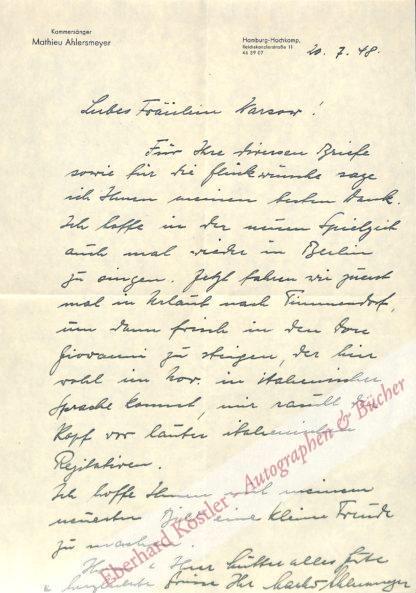 Kammersänger
Mathieu Ahlersmeyer
Hamburg-Hochkamp,
Reichskanzlerstraße 11
46 29 07
20. 7. 48.
Liebes Fräulein Warsow!
Für Ihre diversen Briefe
sowie für die Glückwünsche sage
ich Ihnen meinen besten Dank.
Ich hoffe in der neuen Spielzeit
auch mal wieder in Berlin
zu singen. Jetzt fahren wir zuerst
mal in Urlaub nach Timmendorf,
um dann frisch in den Don
Giovanni zu steigen, der hier
wohl im Nov. in italienischer
Sprache kommt, mir raucht der
Kopf vor lauter italienischen
Rezitativen.
Ich hoffe Ihnen mit meinem
neuesten Bild eine kleine Freude
zu machen.
Ihrer Mutter alles Gute
herzliche Grüsse Ihr Mathieu Ahlersmeyer
Eberhard Köstler - Autographen & Bücher